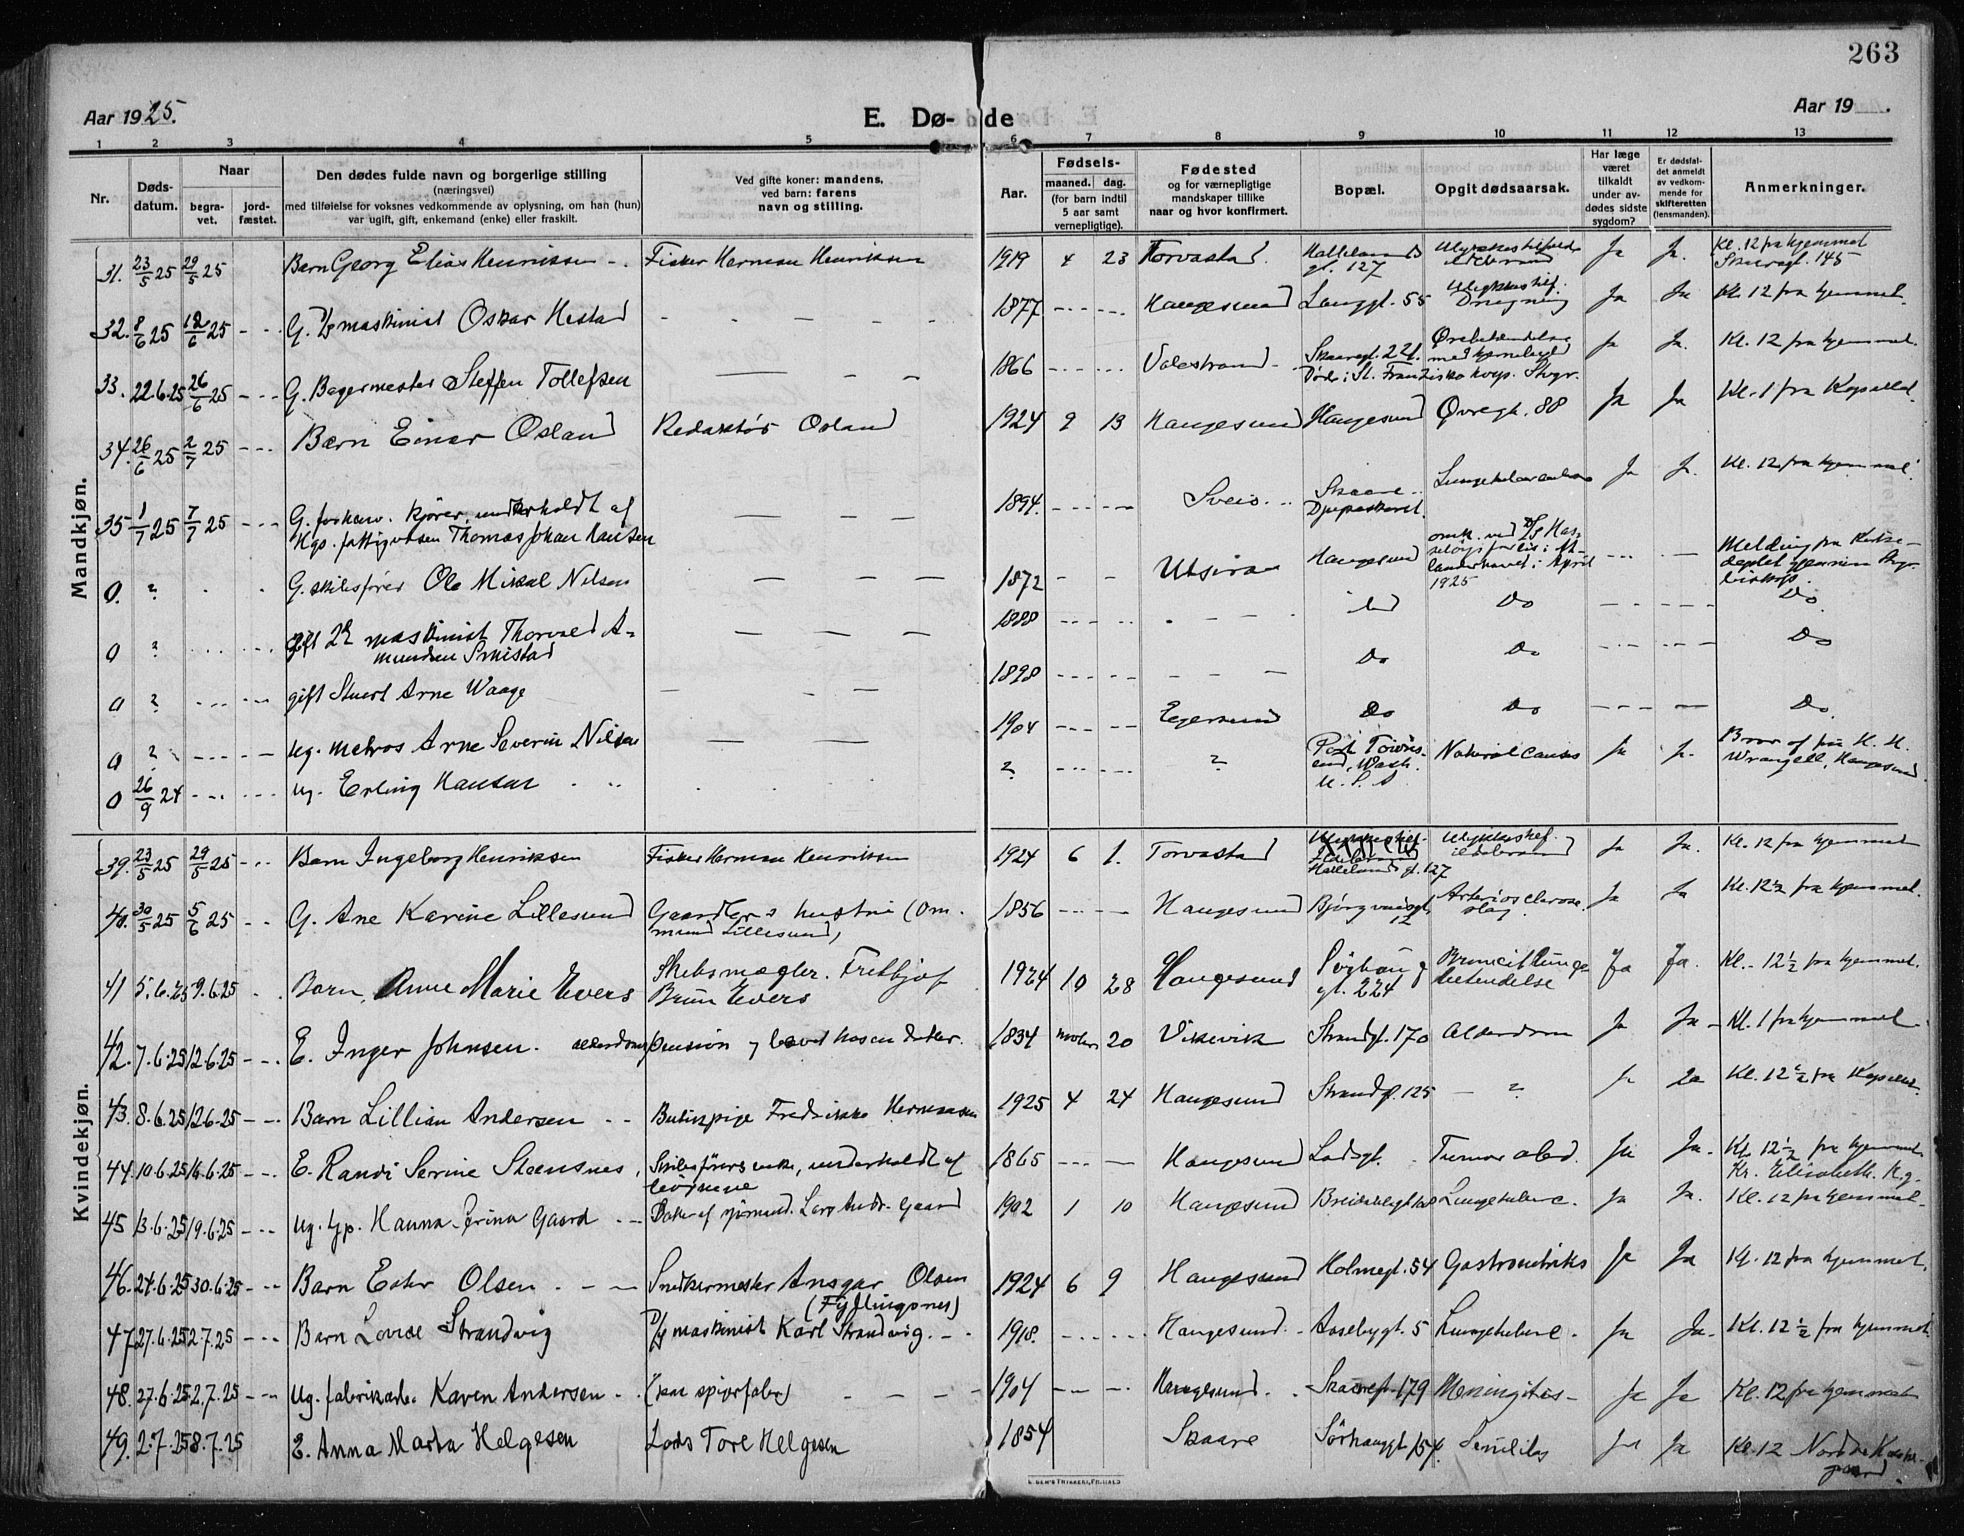 263
Aar 1925.
E. Dø- de
Aar 19 .
1 2 3 4 5 6 7 8 9 10 11 12 13
Nr.
Døds-
datum.
Naar
begra-
vet.
jord-
fæstet.
Den dødes fulde navn og borgerlige stilling
(næringsvei)
med tilføielse for voksnes vedkommende av oplysning, om han (hun)
var ugift, gift, enkemand (enke) eller fraskilt.
Ved gifte koner: mandens,
ved barn: farens
navn og stilling.
Aar.
Fødsels-
maaned. dag.
(for barn indtil
5 aar samt
vernepligtige).
Fødested
og for værnepligtige
mandskaper tillike
naar og hvor konfirmert.
Bopæl.
Opgit dødsaarsak.
Har læge
været
tilkaldt
under av-
dødes sidste
sygdom?
Er dødsfal-
det anmeldt
av vedkom-
mende for
skifteretten
(lensmanden).
Anmerkninger.
Mandkjøn.
31. 23/5 25 29/5 25 Barn Georg Elias Henriksen Fisker Herman Henriksen 1919 4 23 Torvastad. gt. 127 Ja Ja. Kl. 12 fra hjemmet
Skaaregt. 145
32. 8/6 25 12/6 25 G. D/s maskinist Oskar Hestad 1877 Haugesund Langgt. 55 Ulykkeshef.
Drugning Ja Ja Kl. 12 fra hjemmet.
33. 22.6.25 26/6 25 G. Bagermester Steffen Tollefsen 1866 Valestrand Skaaregt. 221.
Død i St. Franziska hosp. Stvgr. Ja Ja. Kl. 12 fra hjemmet.
34. 26/6 25 2/7 25 Barn Einar Osland Redaktør Osland 1924 9 13 Haugesund Haugesund Øvregt. 88 Ja Ja Kl. 1 fra Kapellet.
35 1/7 25 7/7 25 G. forhenv. kjører, underholdt af
Hgs. fattigvæsen Thomas Johan Hansen 1894. Sveio Skaare
Ja Ja Kl. 12 fra hjemmet.
0. ? G. skibsfører Ole Mikal Nilsen 1872 Utsira Haugesund omk. ved D/S
forlis i At-
lanterhavet i April
1925 Melding fra Kirke-
0 ? gift 2den maskinist Thorvald A-
mundsen 1888 Do Do
0 ? gift Stuert Arne Waage 1898 Do Do Do
0 ? ug. matros Arne Severin Nilsen 1904 Egersund Do Do Do.
0 26/9 24 ug. Erling Hansen ? ? Port Towns-
end, Wash.
U. S. A Natural Causes Ja Ja. Bror af fru H. H.
Wrangell, Haugesund
Kvindekjøn.
39. 23/5 25 29/5 25 Barn Ingeborg Henriksen Fisker Herman Henriksen 1924 6 1. Torvastad gt. 127 Ulykkeshef. Ja Ja. Kl. 12 fra hjemmet
40. 30/5 25 5/6 25 G. Ane Karine Lillesund Gaardbr.s hustru (Om-
mund Lillesund) 1856 Haugesund Bjørgvinsgt.
12 Arteriosclerose
slag Ja Ja Kl. 12½ fra hjemmet.
41 5.6.25 9.6.25 Barn, Anne Marie Evers Skibsmægler. Fritbjof
Brun Evers 1924 10 28 Haugesund Sørhaug
gt. 224
betendelse Ja Ja. Kl. 12½ fra hjemmet.
42. 7.6.25 12.6.25 E. Inger Johnsen. alderdoms pension 1834 novbr. 20 Vikevik Strandgt. 170 Alderdom Ja Ja Kl. 1 fra hjemmet.
43. 8.6.25 12.6.25 Barn Lillian Andersen Butikpige Fredrikke Hermansen 1925 4 24 Haugesund Strandgt. 125 ? Ja Ja Kl. 12½ fra Kapellet.
44. 10.6.25 16.6.25 E. Randi Serine Stensnes, Skibsførers enke, underholdt af
børnene 1865 Haugesund Lodsgt. Tumor abd. Ja Ja. Kl. 12½ fra hjemmet
45 13.6.25 19.6.25 ug. Hanna Serina Gaard Datter af sjømand. Lars Andr. Gaard 1902 1 10 Haugesund Lungetuberc. Ja Ja. Kl. 12 fra hjemmet.
46. 24.6.25 30.6.25 Barn Ester Olsen Snedkermester Ansgar Olsen
1924 6 9 Haugesund Holmegt. 54 Gastroenteritis Ja Ja Kl. 12 fra hjemmet.
47 27.6.25 2.7.25 Barn Lovise Strandvig D/s maskinist Karl Strandvig. 1918. Haugesund. Aasebygt. 5 Lungetuberc. Ja Ja. Kl. 12½ fra hjemmet
48. 27.6.25 2.7.25 Ug. fabrikarb. Karen Andersen 1904 Haugesund. Skaaregt. 179 Meningitis Ja Ja Kl. 12 fra hjemmet
49. 2.7.25 8.7.25 E. Anna Marta Helgesen Lods Tore Helgesen 1854 Skaare Sørhauggt 154. Senilitas Ja Ja Kl. 12